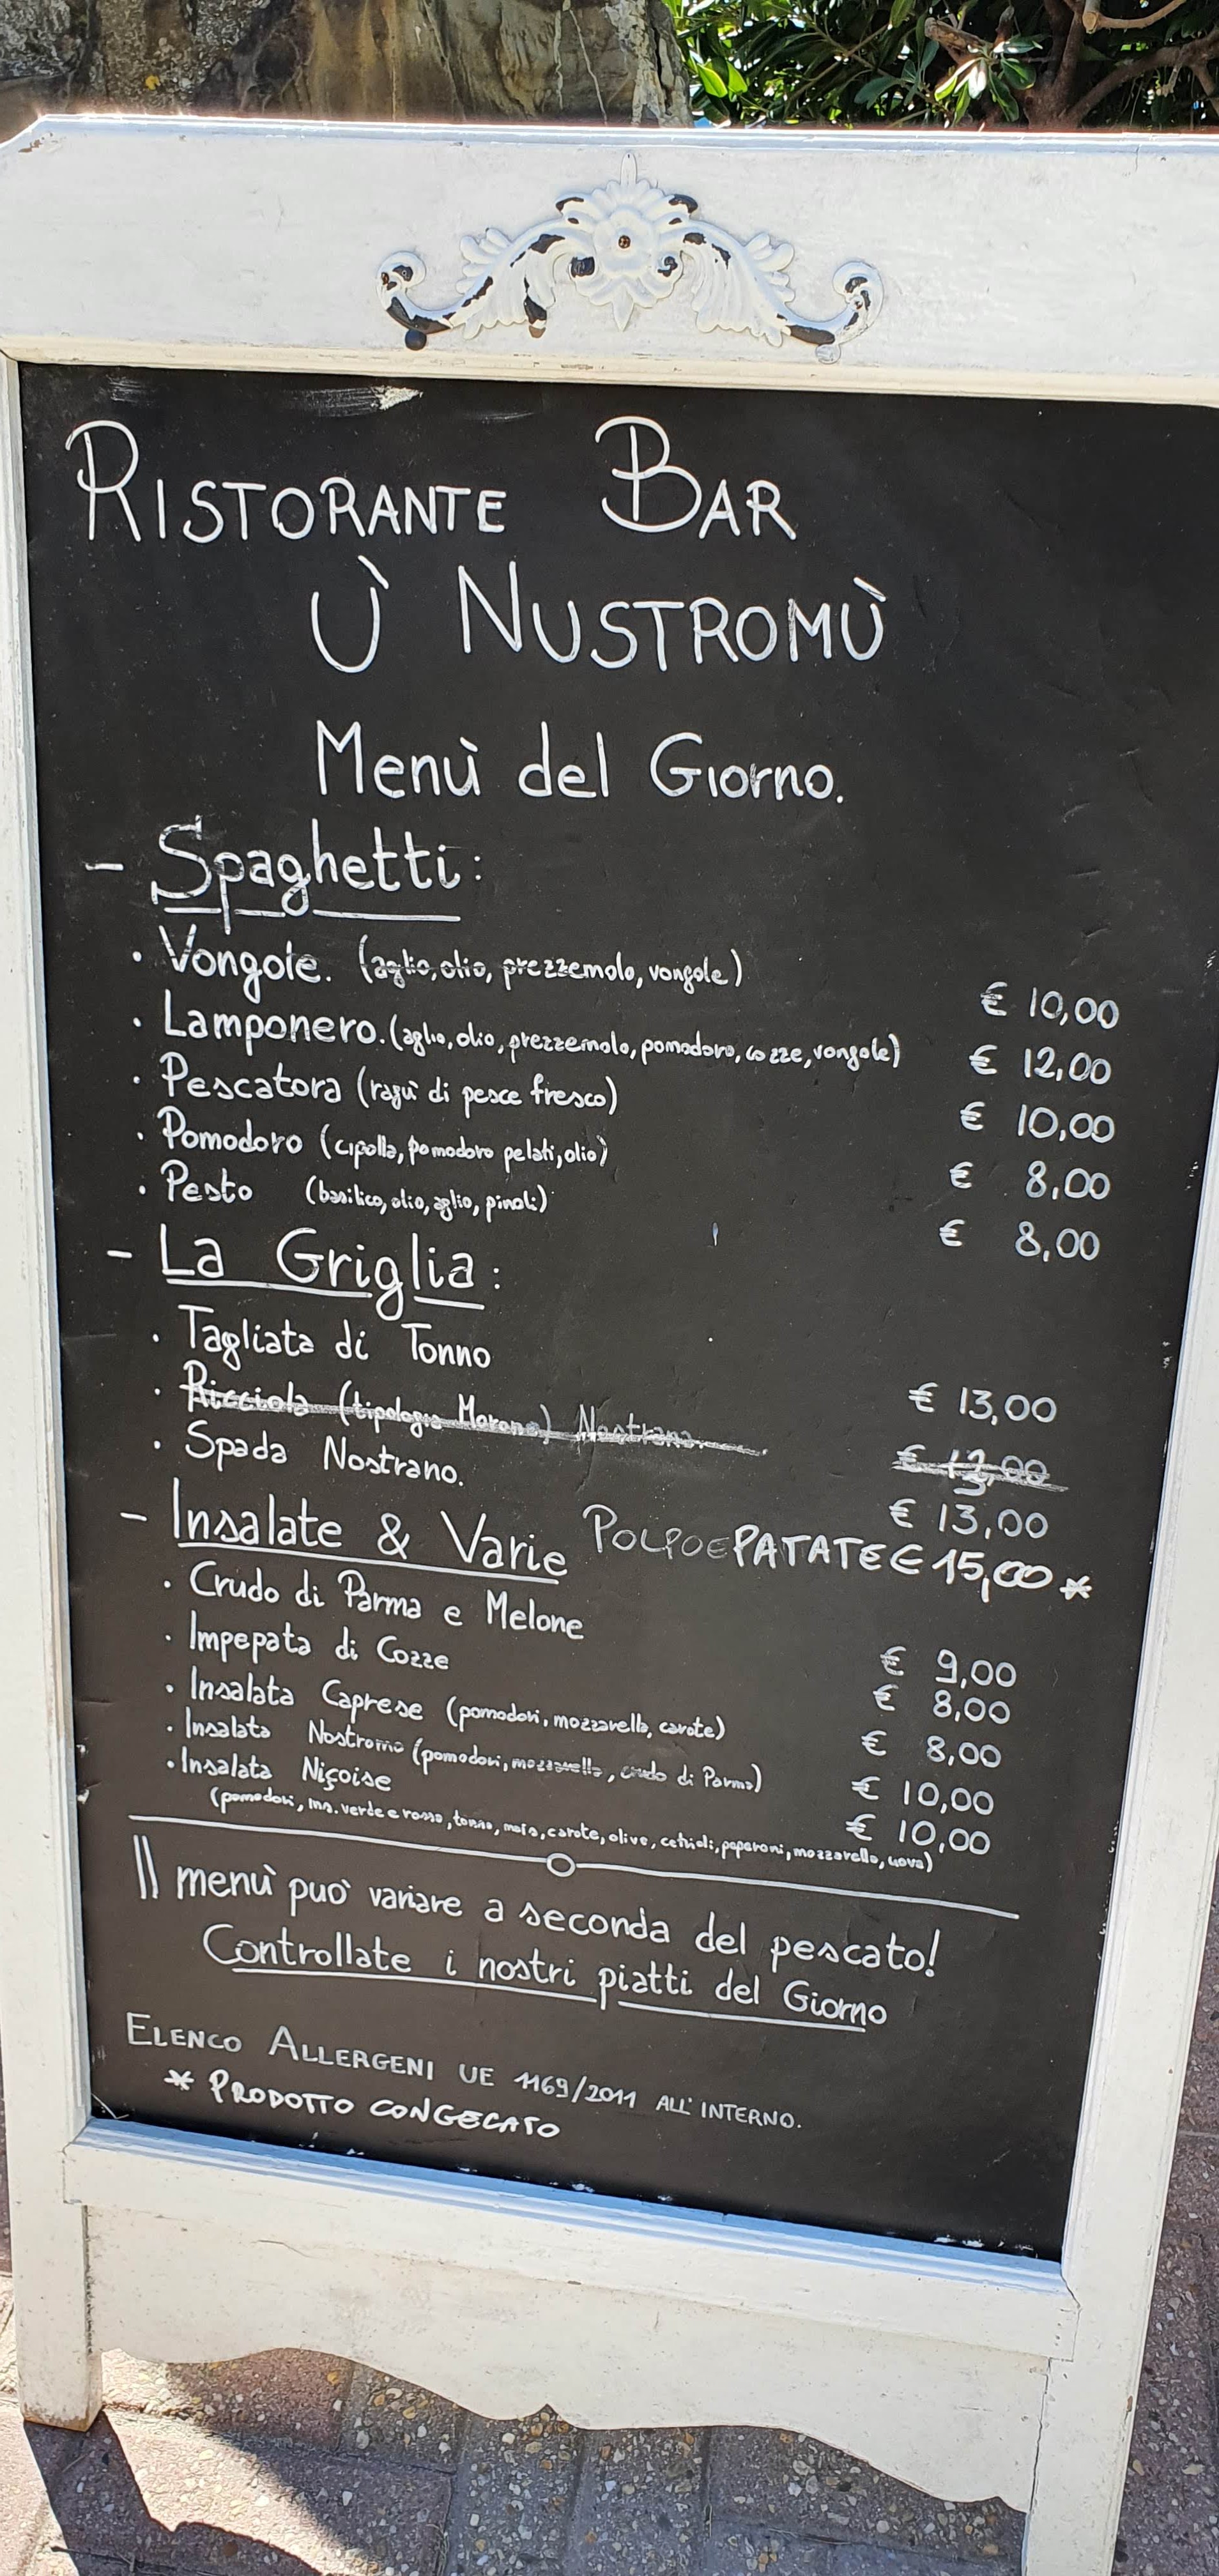 RISTORANTE BAR
Ù NUSTROMÙ
Menù del Giorno.
- Spaghetti:
· Vongole. (aglio, olio, prezzemolo, vongole) € 10,00
· Lamponero. (aglio, olio, prezzemolo, pomodoro, cozze, vongole) € 12,00
· Pescatora (ragù di pesce fresco) € 10,00
· Pomodoro (cipolla, pomodoro pelati, olio) € 8,00
· Pesto (basilico, olio, aglio, pinoli) € 8,00
- La Griglia:
· Tagliata di Tonno € 13,00
· Ricciola (tipologia Morono) Nostrano. € 13,00
· Spada Nostrano. € 13,00
- Insalate & Varie POLPO E PATATE € 15,00 *
· Crudo di Parma e Melone € 9,00
· Impepata di Cozze € 8,00
· Insalata Caprese (pomodori, mozzarella, carote) € 8,00
· Insalata Nostromo (pomodori, mozzarella, crudo di Parma) € 10,00
· Insalata Niçoise € 10,00
(pomodori, ins. verde e rossa, tonno, mais, carote, olive, cetrioli, peperoni, mozzarella, uova)
Il menù può variare a seconda del pescato!
Controllate i nostri piatti del Giorno
ELENCO ALLERGENI UE 1169/2011 ALL'INTERNO.
* PRODOTTO CONGELATO